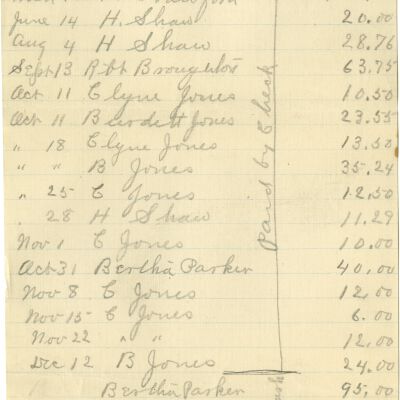 June 14 H. Shaw 20.00
Aug 4 H Shaw 28.76
Sept 13 Robt Broughton 63.75
Oct 11 Clyne Jones 10.50
Oct 11 Burdett Jones 23.55
" 18 Clyne Jones 13.50
" " B Jones 35.24
" 25 C Jones 12.50
. 28 H Shaw 11.29
Nov 1 C Jones 10.00
Oct 31 Bertha Parker 40.00
Nov 8 C Jones 12.00
Nov 15 C Jones 6.00
Nov 22 " " 12.00
Dec 12 B Jones 24.00
Bertha Parker 95.00
Paid by Check